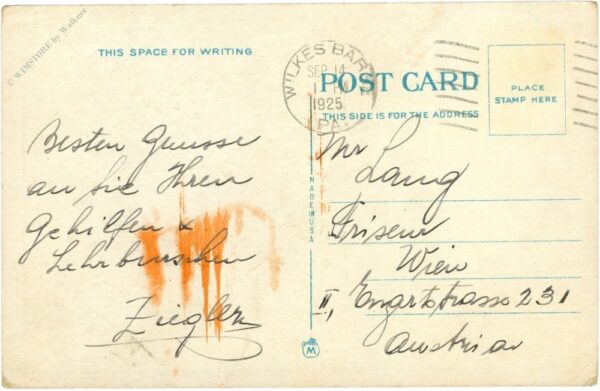 © WIMSTORE by Walkner
THIS SPACE FOR WRITING
Besten Grüsse
an Sie Ihren
Gehilfen &
Lehrburschen
Ziegler
WILKES BARRE
SEP 14
1925
PA.
POST CARD
THIS SIDE IS FOR THE ADDRESS
PLACE
STAMP HERE
MADE IN USA
Mr Lang
Friseur
Wien
II, Engertstrasse 231
Austria
M